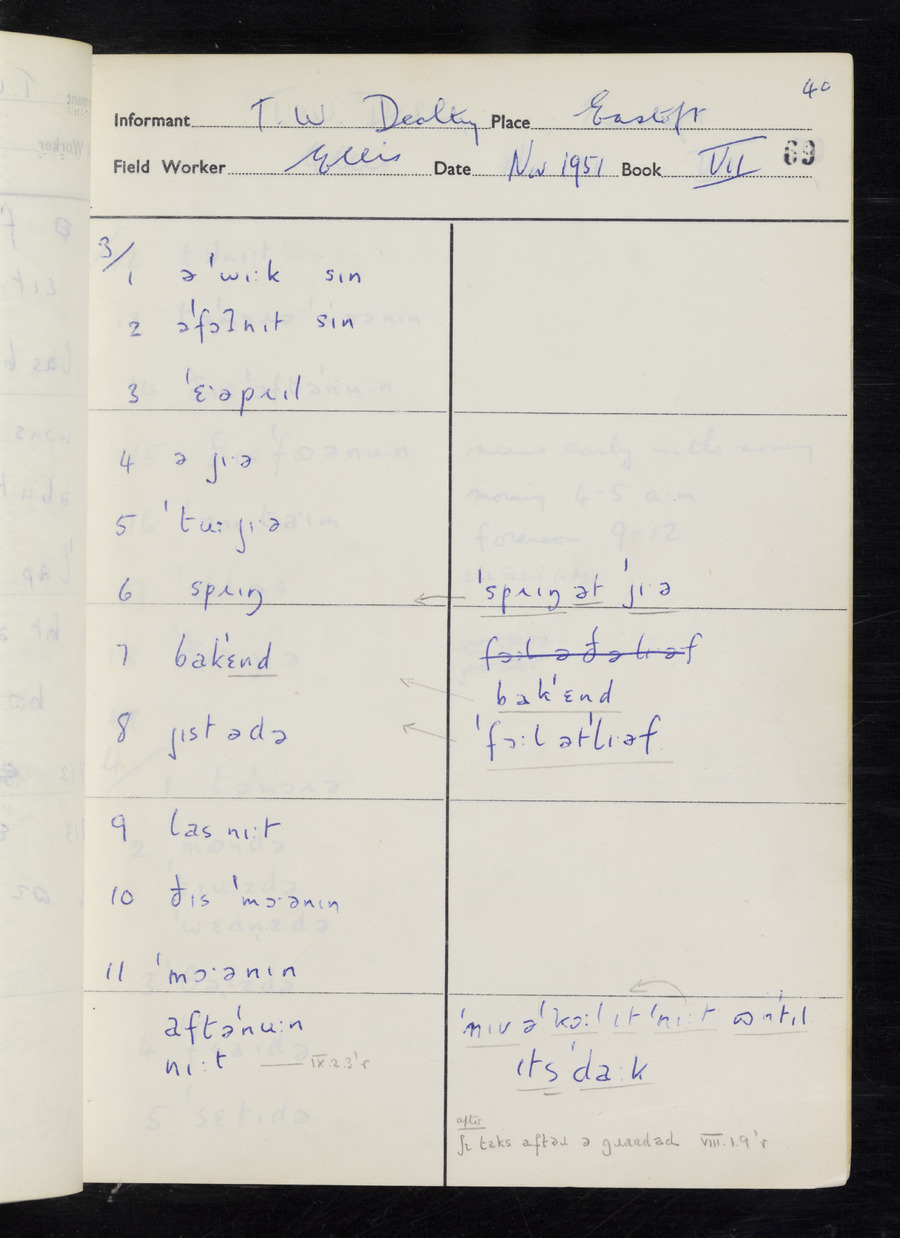 40
Informant T. W. Dealtry Place Eastoft
Field Worker Ellis Date Nov 1951 Book VII 69
3/
1 ə ˈwɪːk sɪn
2 əˈfɔʔnɪt sɪn
3 ˈɛˑəpɹɪl
4 ə jɪˑə
5 ˈtuː jɪˑə
6 spɹɪŋ ˈspɹɪŋ ət ˈjɪˑə
7 bakˈɛnd fɔːl ə ðə lɪəf
bakˈɛnd
8 jɪstədə ˈfɔːl ətˈlɪˑəf
9 las nɪːt
10 ðɪs ˈmɔˑənɪn
11 ˈmɔˑənɪn
aftəˈnuːn ˈnɪv ə ˈkɔːl ɪt ˈnɪːt ɷntɪl
nɪːt IX.2.3ˈr ɪts ˈdaːk
after
ʃɪ tɛks aftəɹ ə gɹandad VIII.1.9ˈr